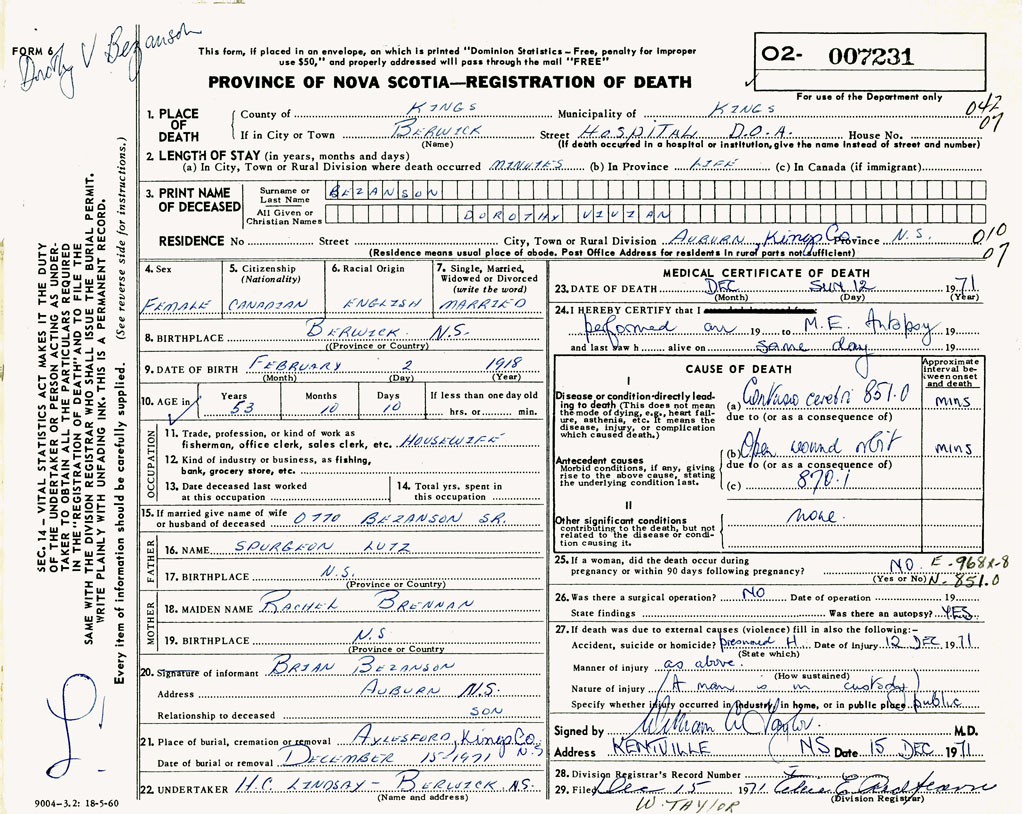 FORM 6
Dorothy V Bezanson
This form, if placed in an envelope, on which is printed "Dominion Statistics – Free, penalty for improper
use $50," and properly addressed will pass through the mail "FREE"
O2- 007231
PROVINCE OF NOVA SCOTIA—REGISTRATION OF DEATH
For use of the Department only
1. PLACE OF DEATH
County of KINGS Municipality of KINGS 042
If in City or Town BERWICK Street HOSPITAL D.O.A. House No. 07
(Name) (If death occurred in a hospital or institution, give the name instead of street and number)
2. LENGTH OF STAY (in years, months and days)
(a) In City, Town or Rural Division where death occurred MINUTES (b) In Province LIFE (c) In Canada (if immigrant)
3. PRINT NAME OF DECEASED
Surname or Last Name BEZANSON
All Given or Christian Names DOROTHY VIVIAN
RESIDENCE No Street City, Town or Rural Division AUBURN, Kings Co. Province N.S. 010
(Residence means usual place of abode. Post Office Address for residents in rural parts not sufficient) 07
4. Sex 5. Citizenship (Nationality) 6. Racial Origin 7. Single, Married, Widowed or Divorced (write the word)
FEMALE CANADIAN ENGLISH MARRIED
8. BIRTHPLACE BERWICK N.S.
(Province or Country)
9. DATE OF BIRTH FEBRUARY 2 1918
(Month) (Day) (Year)
10. AGE in Years Months Days If less than one day old
53 10 10 hrs. or min.
OCCUPATION
11. Trade, profession, or kind of work as
fisherman, office clerk, sales clerk, etc. HOUSEWIFE
12. Kind of industry or business, as fishing,
bank, grocery store, etc.
13. Date deceased last worked at this occupation 14. Total yrs. spent in this occupation
15. If married give name of wife
or husband of deceased OTTO BEZANSON SR.
FATHER
16. NAME SPURGEON LUTZ
17. BIRTHPLACE N.S.
(Province or Country)
MOTHER
18. MAIDEN NAME RACHEL BRENNAN
19. BIRTHPLACE N.S
(Province or Country
20. Signature of informant BRIAN BEZANSON
Address AUBURN N.S.
Relationship to deceased SON
21. Place of burial, cremation or removal AYLESFORD, Kings Co. N.S
Date of burial or removal DECEMBER 15-1971
22. UNDERTAKER H.C. LINDSAY - BERWICK N.S.
(Name and address)
MEDICAL CERTIFICATE OF DEATH
23. DATE OF DEATH DEC SUN 12 1971
(Month) (Day) (Year)
24. I HEREBY CERTIFY that I
performed an 19 to M.E. Autopsy 19
and last saw h alive on same day 19
CAUSE OF DEATH
Approximate interval between onset and death
I
Disease or condition directly leading to death (This does not mean the mode of dying, e.g., heart failure, asthenia, etc. It means the disease, injury, or complication which caused death.)
(a) Contusio cerebri 851.0 mins
due to (or as a consequence of)
Antecedent causes
Morbid conditions, if any, giving rise to the above cause, stating the underlying condition last.
(b) Open wound orbit mins
due to (or as a consequence of)
(c) 870.1
II
Other significant conditions
contributing to the death, but not related to the disease or condition causing it.
none.
25. If a woman, did the death occur during
pregnancy or within 90 days following pregnancy? NO E-968x-8
(Yes or No) N-851.0
26. Was there a surgical operation? NO Date of operation 19
State findings Was there an autopsy? YES
27. If death was due to external causes (violence) fill in also the following:–
Accident, suicide or homicide? presumed H Date of Injury 12 DEC 1971
(State which)
Manner of injury as above.
(How sustained)
Nature of injury (A man is in custody)
Specify whether injury occurred in industry in home, or in public place public
Signed by William A Taylor M.D.
Address KENTVILLE NS Date 15 DEC 1971
28. Division Registrar's Record Number
29. Filed Dec 15 1971
(Division Registrar)
W. TAYLOR
SEC. 14 – VITAL STATISTICS ACT MAKES IT THE DUTY
OF THE UNDERTAKER OR PERSON ACTING AS UNDER-
TAKER TO OBTAIN ALL THE PARTICULARS REQUIRED
IN THE "REGISTRATION OF DEATH" AND TO FILE THE
SAME WITH THE DIVISION REGISTRAR WHO SHALL ISSUE THE BURIAL PERMIT.
WRITE PLAINLY WITH UNFADING INK. THIS IS A PERMANENT RECORD.
Every item of information should be carefully supplied. (See reverse side for instructions.)
9004-3.2: 18-5-60